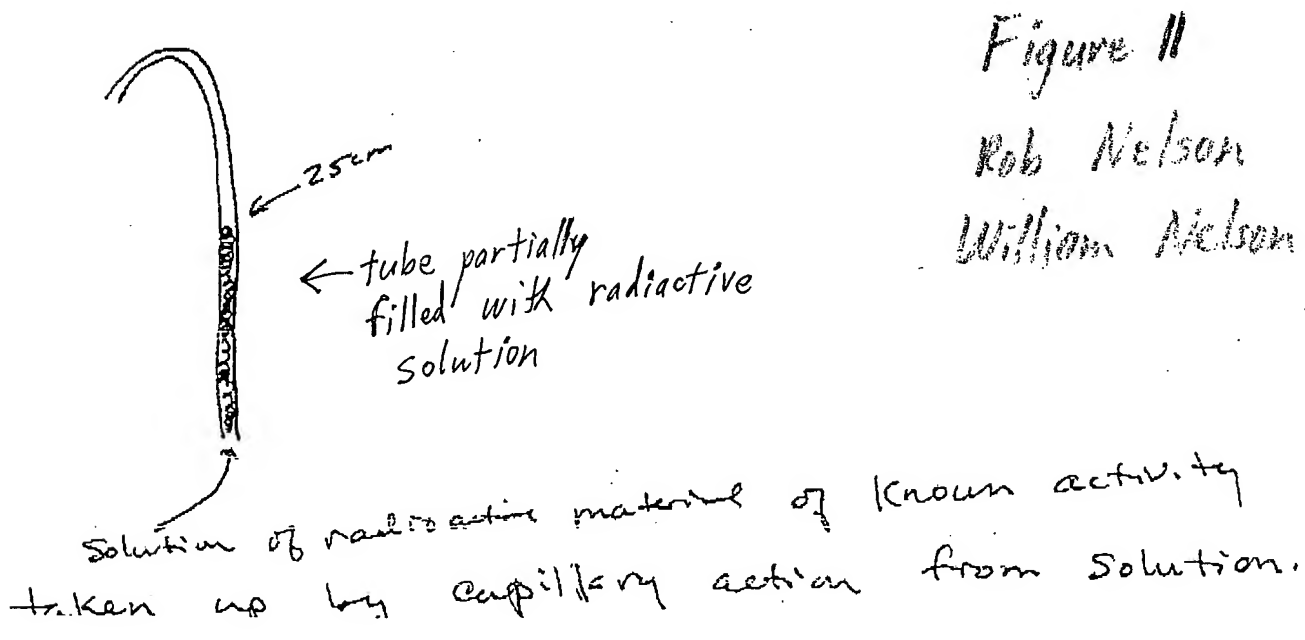 Figure 11
Rob Nelson
William Nelson
25cm
← tube partially
filled with radiactive
solution
Solution of radioactive material of known activity
taken up by capillary action from solution.